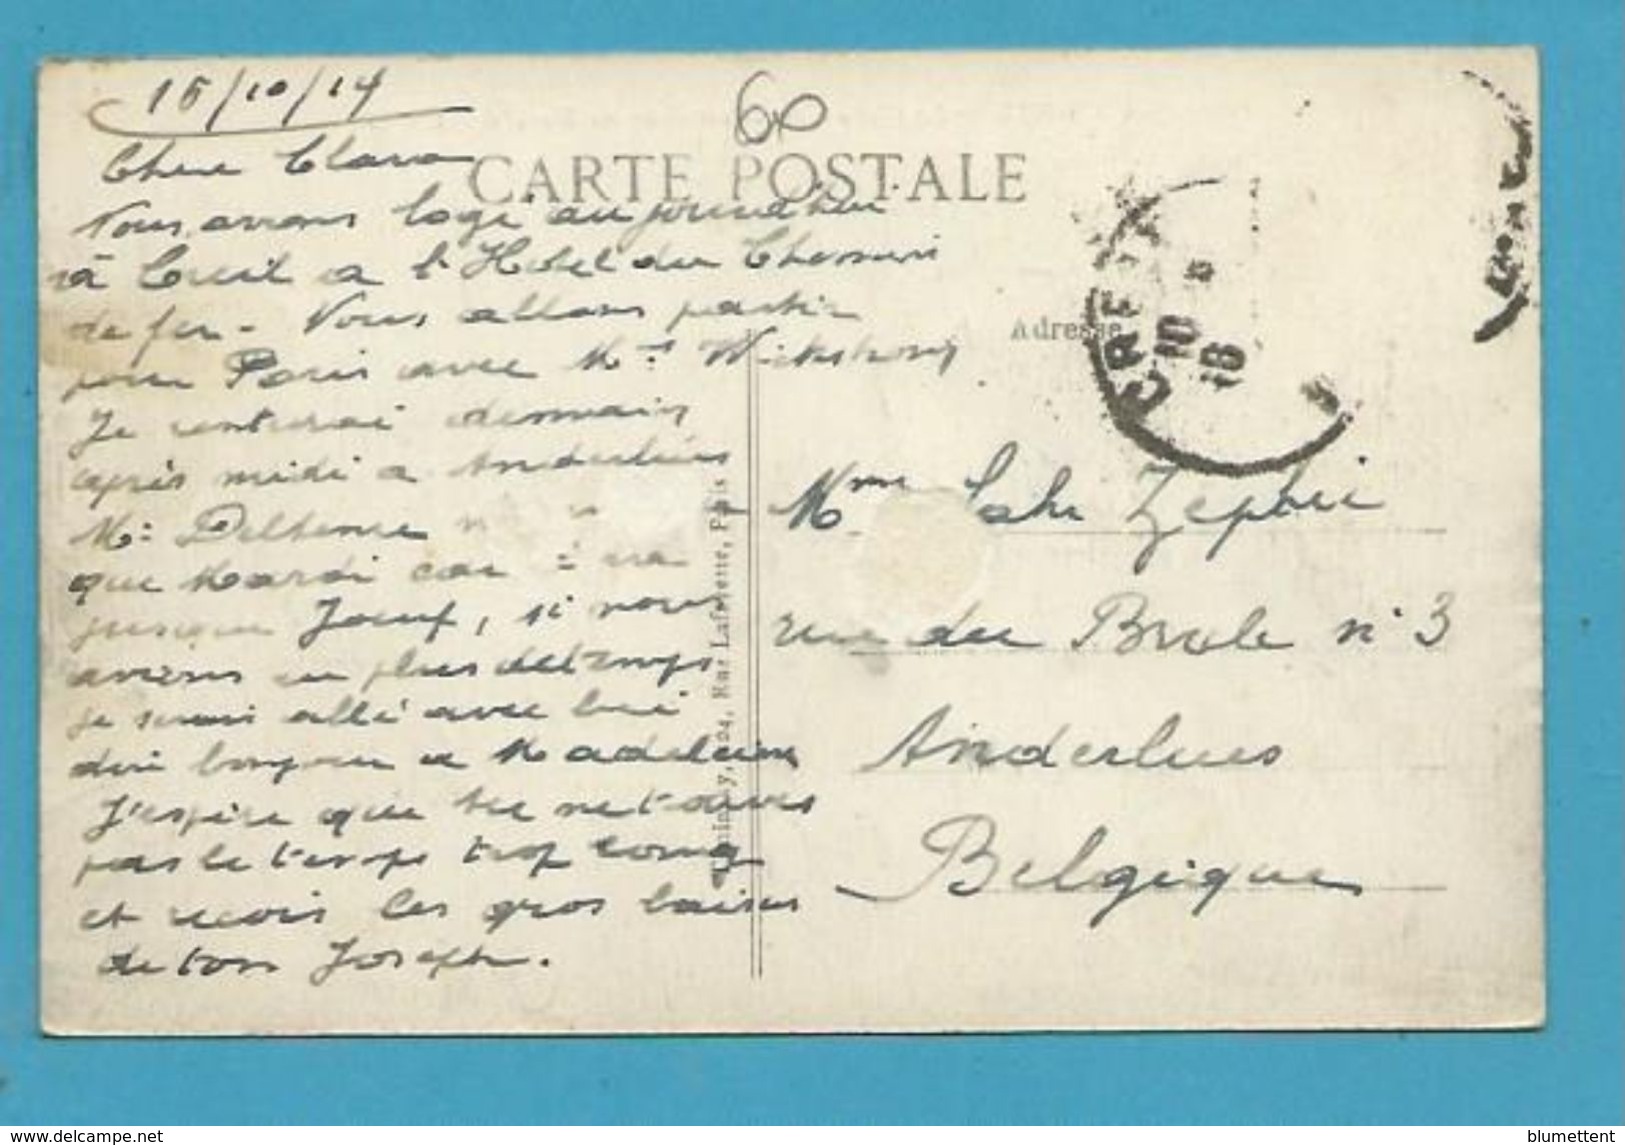 15/10/14
60
Chere Clara
CARTE POSTALE
Nous avons logé aujourd'hui
à Creil a l'Hotel du Chemin
de fer. Nous allons partir
pour Paris avec Mr
Je rentrerai demain
après midi a Anderlues
Mr Deltenre
que Mardi car
jusque Joeuf, si nous
avions eu plus de temps
je serais allé avec lui
dire bonjour a Madeleine
J'espère que tu ne trouves
pas le temps trop long
et reçois les gros baisers
de ton Joseph.
Rue Lafayette, Paris
Adresse
CREIL
10
18
Mme Zephir
rue du Brule n° 3
Anderlues
Belgique
blumettent